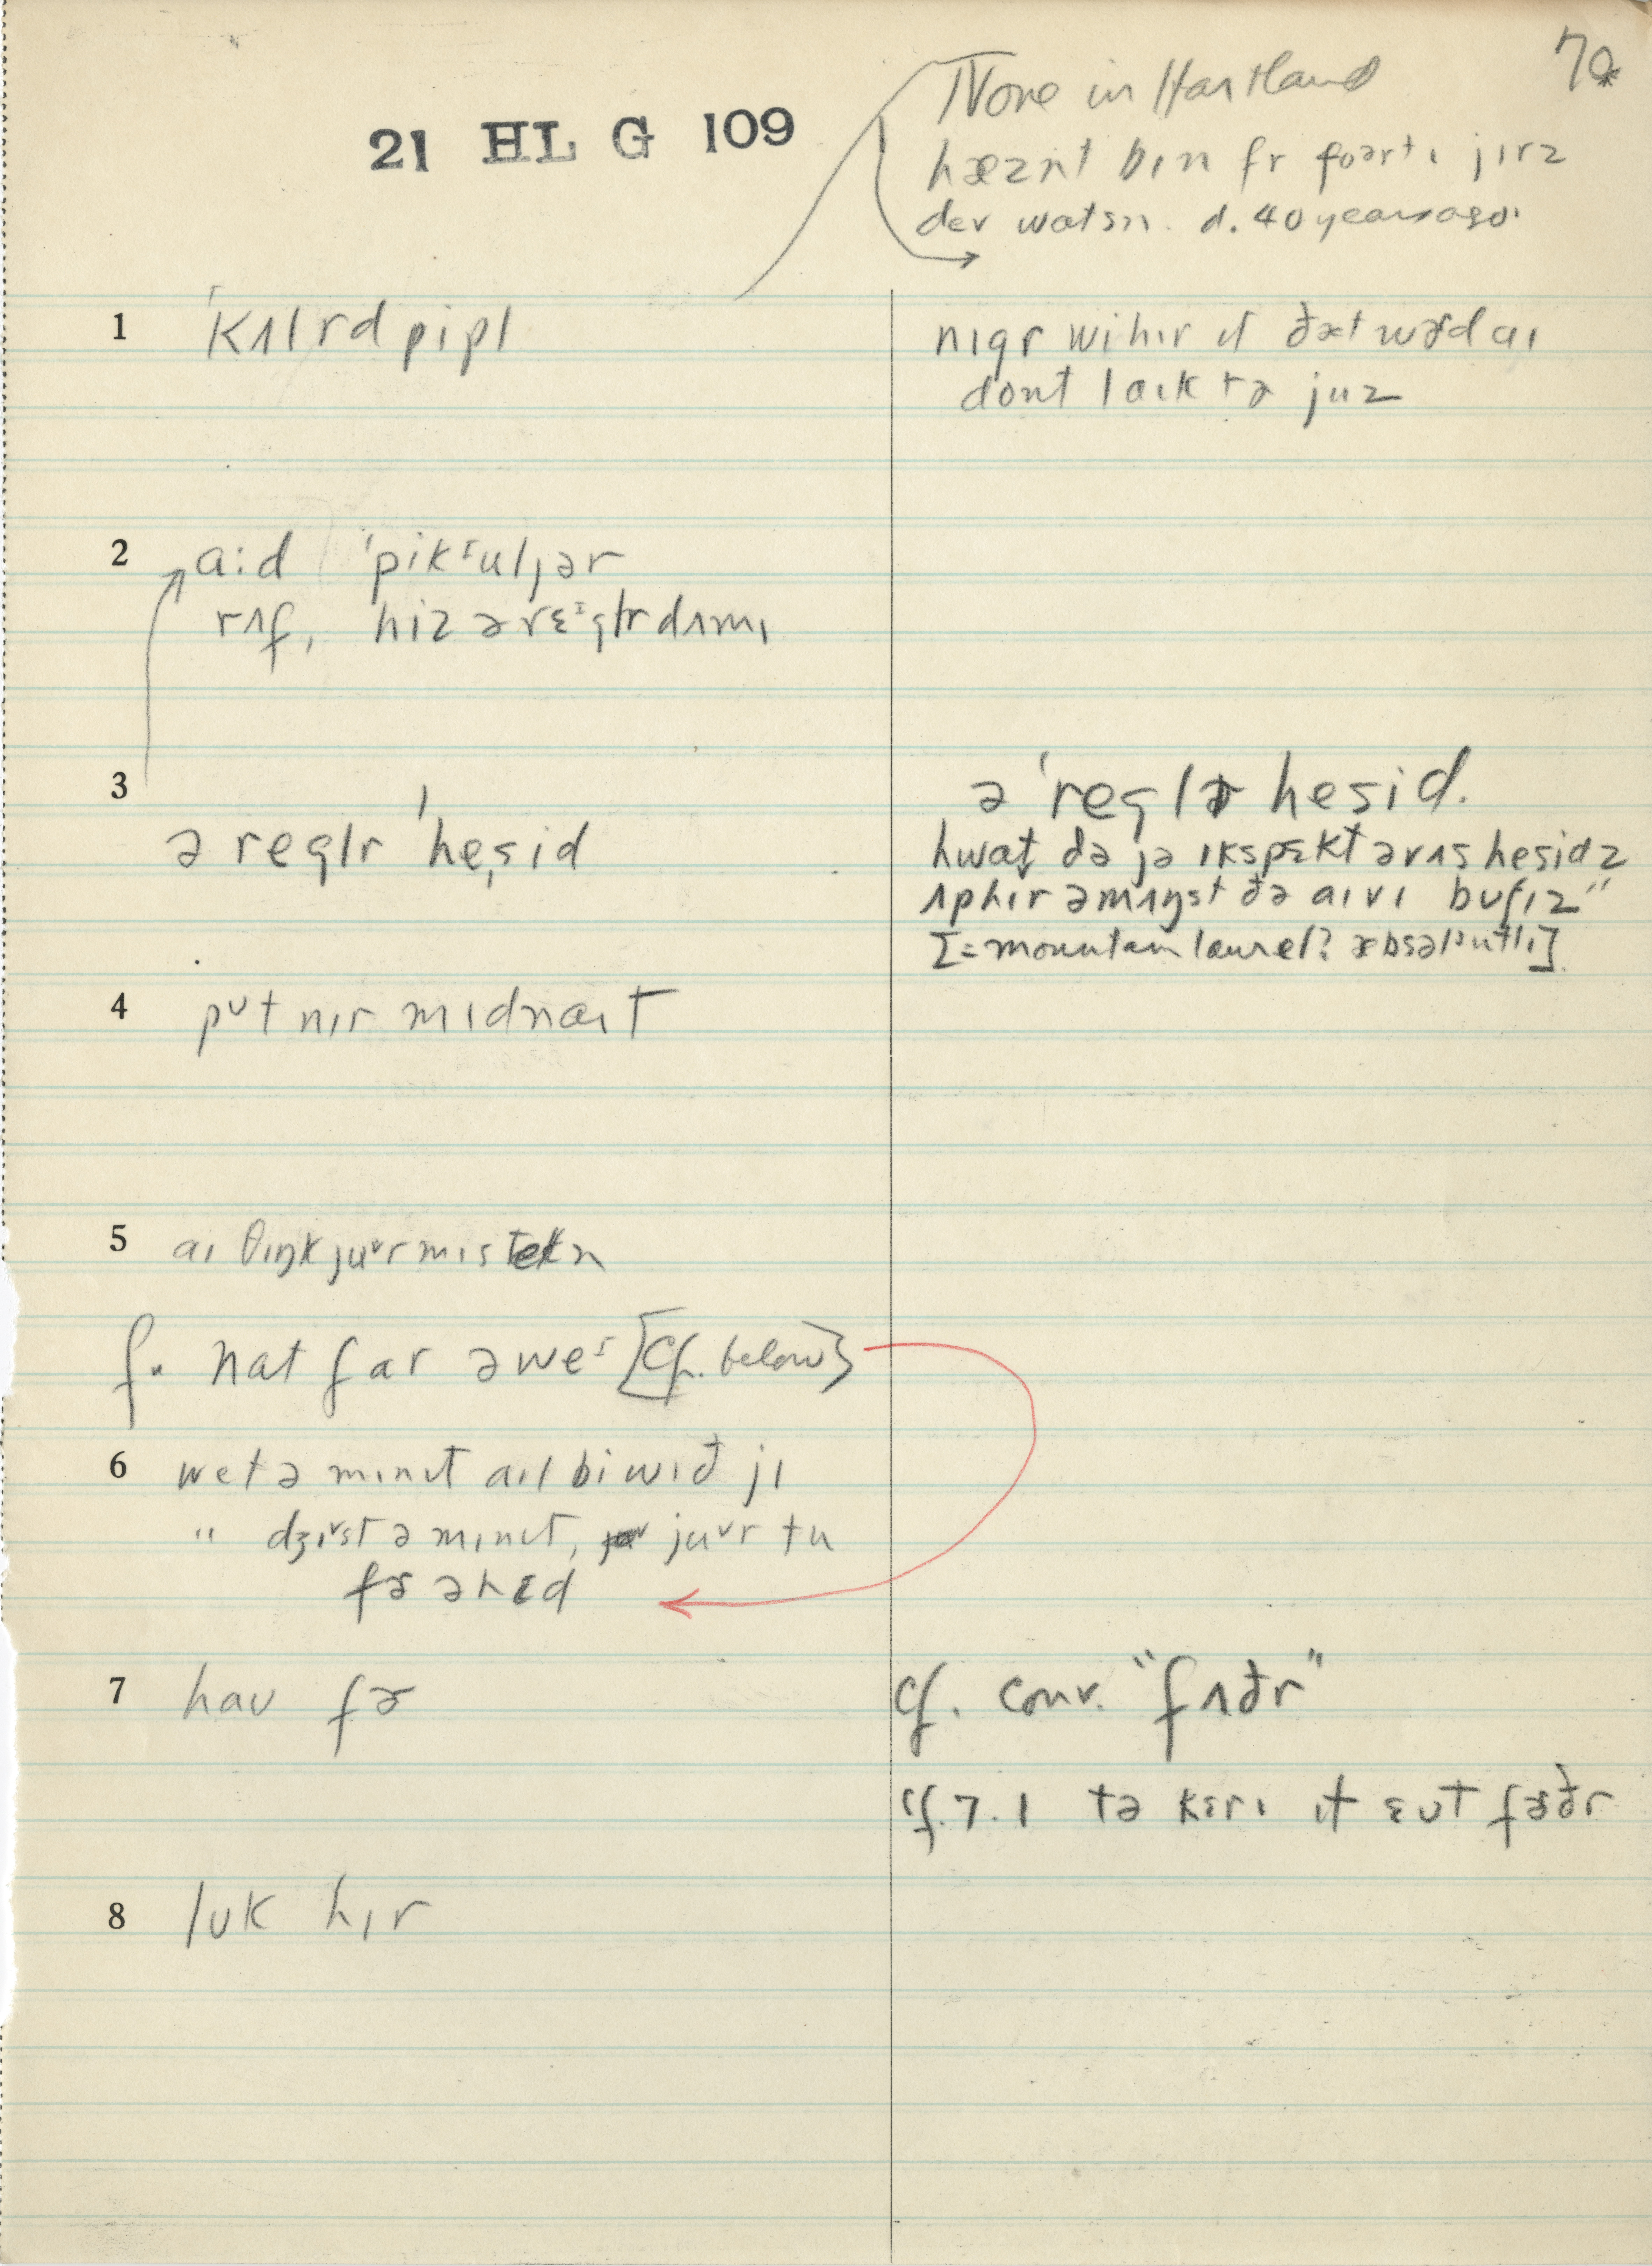 70*
21 HL G 109
None in Hartland
hæznt bɪn fr foərtɪ jɪrz
dev watsn. d. 40 years ago.
1 ˈkʌlrd pipl
nɪgr wi hɪr ɪt ðæt wɚd aɪ
dont laɪk tə juz
2 a:d ˈpikˢuljər
rʌf, hiz ə rɛᶦglr dʌmɪ
3
ə reglr ˈhesid
ə ˈreglɚ hesid.
hwat də jə ɪkspɛkt əv ʌs hesidz
ʌp hɪr əmʌŋst ðə aɪvɪ buʃɪz"
[= mountain laurel? æbsəlᶾutlɪ]
4 pᴜt nɪr mɪdnaɪt
5 aɪ θɪŋk juᵛr mɪstekn
f. nat far əweᶦ [Cf. below]
6 wet ə mɪnɪt aɪl bi wɪð jɪ
" dʒɪᵛst ə mɪnɪt, juᵛr tu
fɚ əhɛd
7 haʊ fɚ
cf. conv. "fʌðr"
cf. 7.1 tə kɛrɪ ɪt ɛʊt fɚðr
8 lʊk hɪr